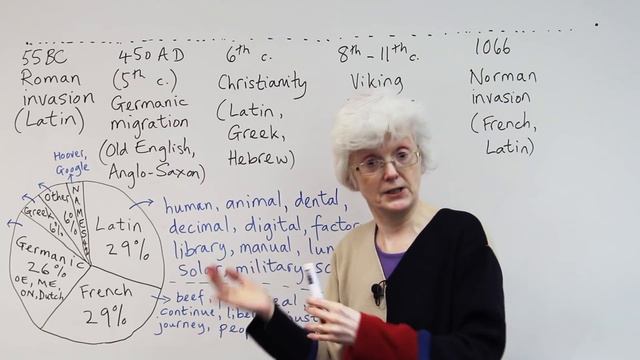 55BC
Roman
invasion
(Latin)
450 AD
(5th c.)
Germanic
migration
(Old English,
Anglo-Saxon)
6th c.
Christianity
(Latin,
Greek,
Hebrew)
8th-11th c.
Viking
1066
Norman
invasion
(French,
Latin)
Hoover,
Google
NAMES
Other
6%
Greek
6%
Latin
29%
Germanic
26%
OE, ME,
ON, Dutch
French
29%
human, animal, dental,
decimal, digital, factor
library, manual,
military
beef,
continue,
journey,